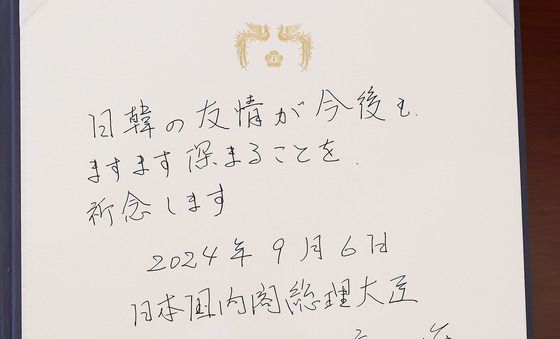 日韓の友情が今後も、
ますます深まることを、
祈念します
2024年9月6日
日本国内閣総理大臣